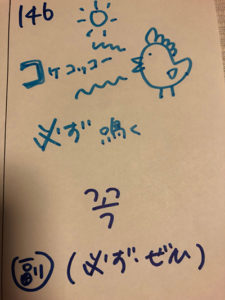 146
コケコッコー
必ず 鳴く
つつ
つ
副 (必ず ぜひ)